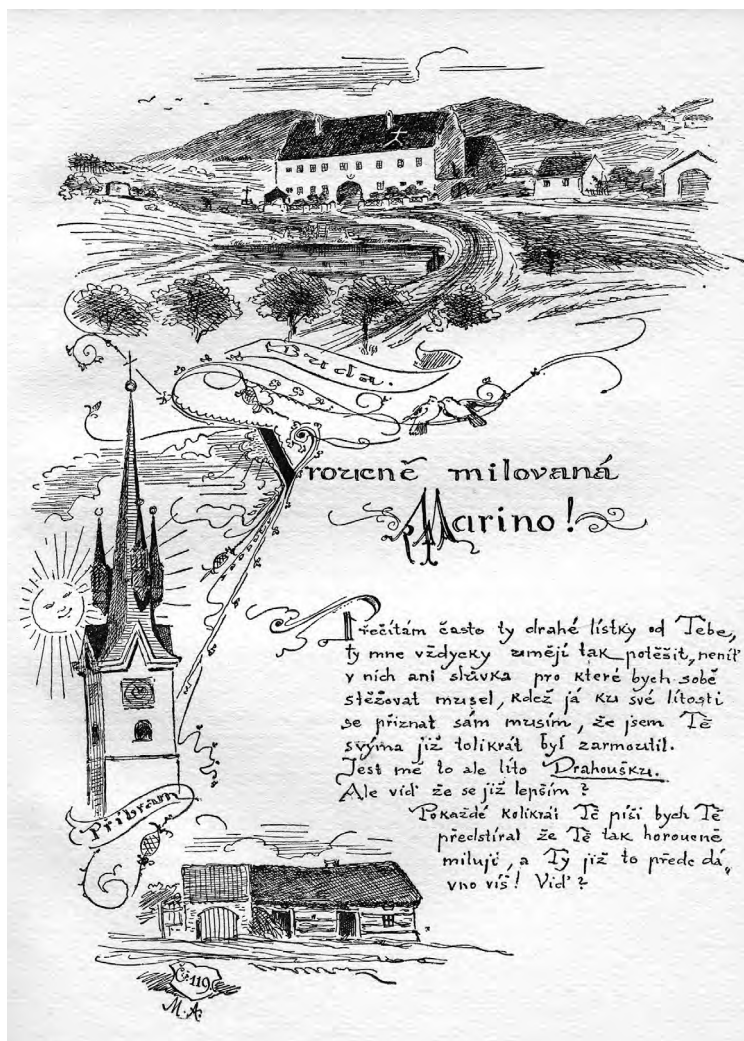 Buda.
Vroucně milovaná
Marino!
Přečítám často ty drahé lístky od Tebe,
ty mne vždycky umějí tak potěšit, neníť
v nich ani slůvka pro které bych sobě
stěžovat musel, kdež já ku své lítosti
se přiznat sám musím, že jsem Tě
svýma již tolikrát byl zarmoutil.
Jest mě to ale líto Drahoušku.
Ale viď že se již lepším?
Pokaždé kolikrát Tě píši bych Tě
předstíral že Tě tak horoucně
miluji, a Ty již to přede dá„
vno víš! Viď?
Příbram
119.
M. A.